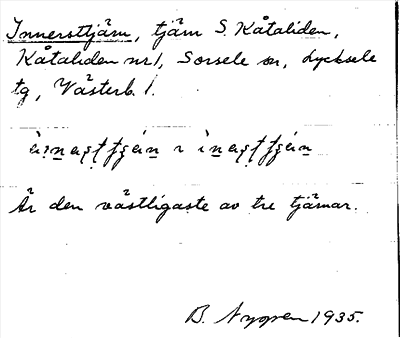 Innersttjärn, tjärn S. Kåtaliden,
Kåtaliden nr1, Sorsele sn, Lycksele
tg, Västerb. l.
Är den västligaste av tre tjärnar.
B. Nygren 1935.